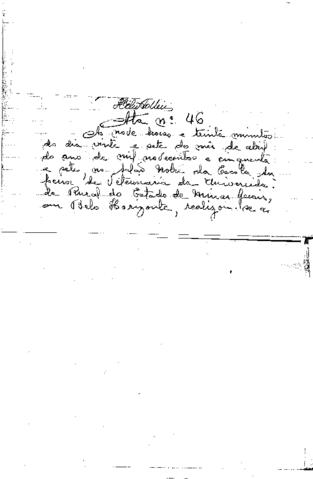 Ata nº 46
As nove horas e trinta minutos
do dia vinte e sete do mês de abril
do ano de mil novecentos e cinquenta
e sete no Salão Nobre da Escola Su
perior de Veterinaria da Universida-
de Rural do Estado de Minas Gerais,
em Belo Horizonte, realizou-se a